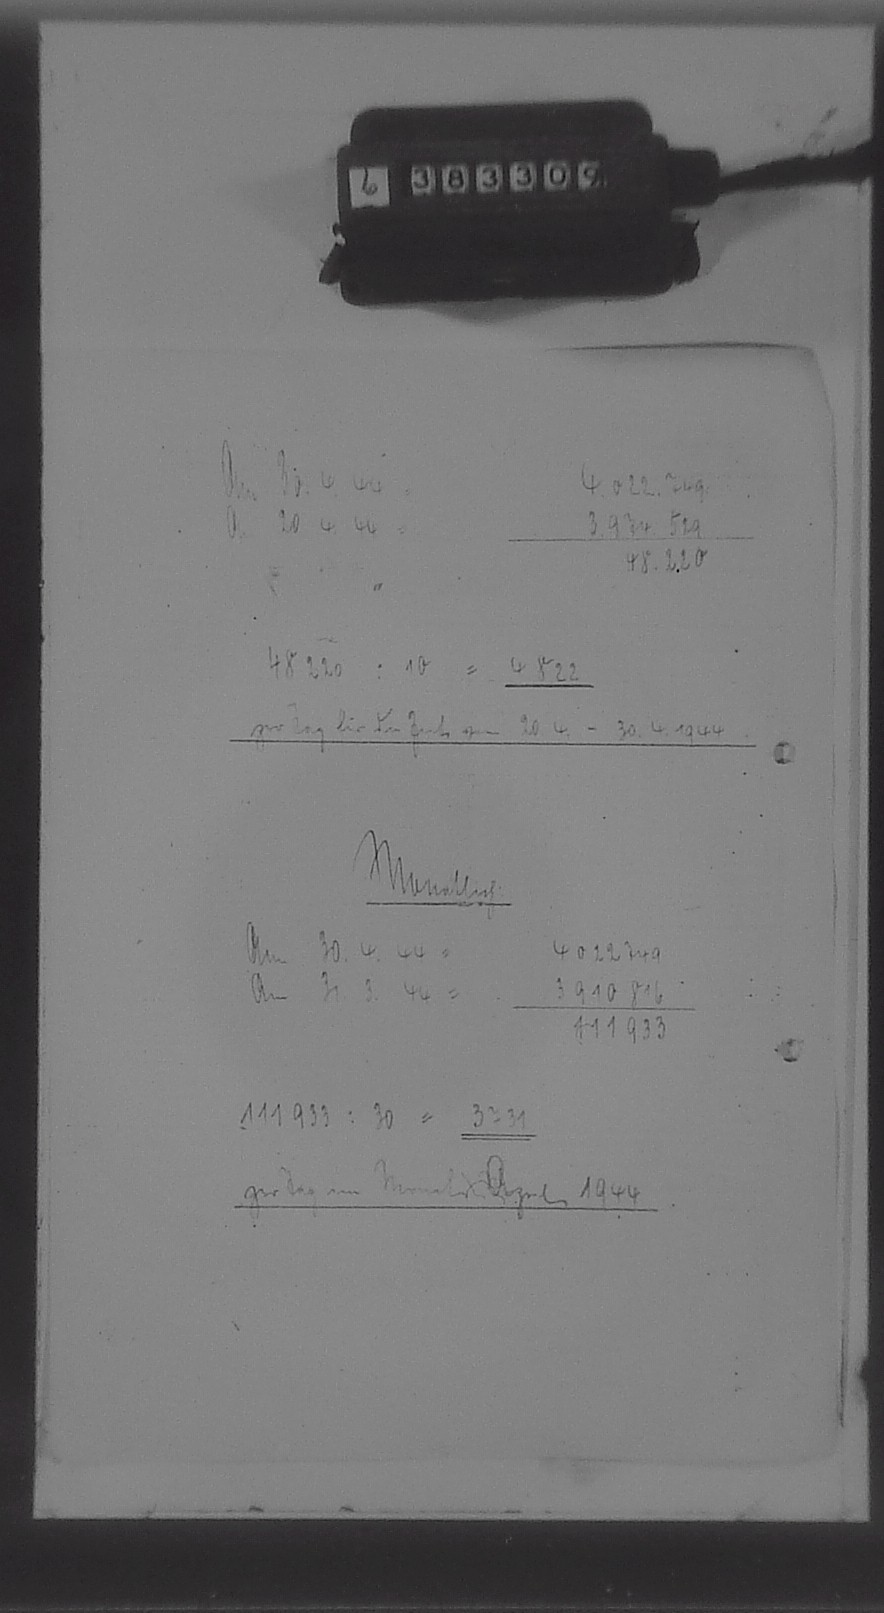 6 383309
Am 30. 4. 44 = 4.022.749
A. 20 4. 44 = 3.974.529
48.220
"
48220 : 10 = 4822
per Tag für die Zeit vom 20.4. - 30.4.1944.
Monatlich:
Am 30. 4. 44 = 4022749
Am 31. 3. 44 = 3910816
111933
111933 : 30 = 3731
per Tag im Monat April 1944